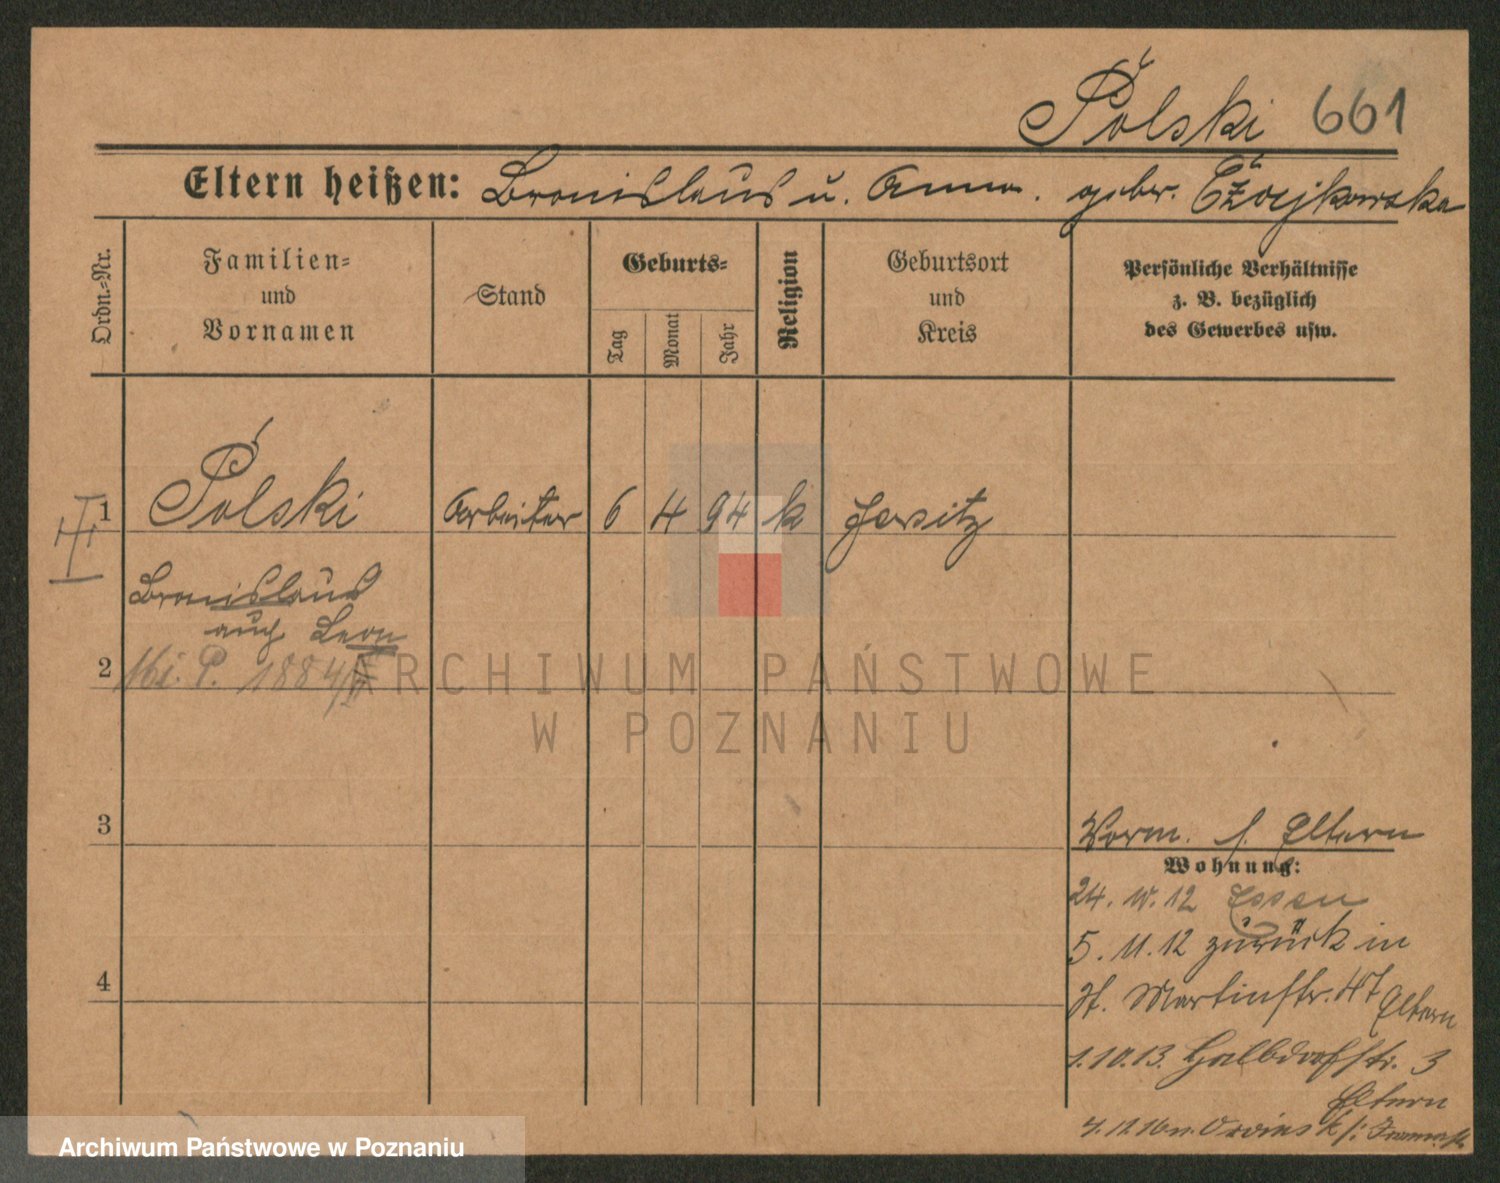 Polski 661
Eltern heißen: Bronislaus u. Anna. gebor.
Ordn.-Nr.
Familien-
und
Vornamen
Stand
Geburts-
Tag
Monat
Jahr
Religion
Geburtsort
und
Kreis
Persönliche Verhältnisse
z. B. bezüglich
des Gewerbes usw.
1 Polski Arbeiter 6 4 94 k Jersitz
Bronislaus
auch Leon
2 Mi. P. 1884
3
Vorm. s. Eltern
Wohnung:
24. 10. 12 Essen
5. 11. 12 zurück in
St. Martinstr. 47 Eltern
4
1. 10. 13. Halbdorfstr. 3
Eltern
ARCHIWUM PAŃSTWOWE
W POZNANIU
Archiwum Państwowe w Poznaniu